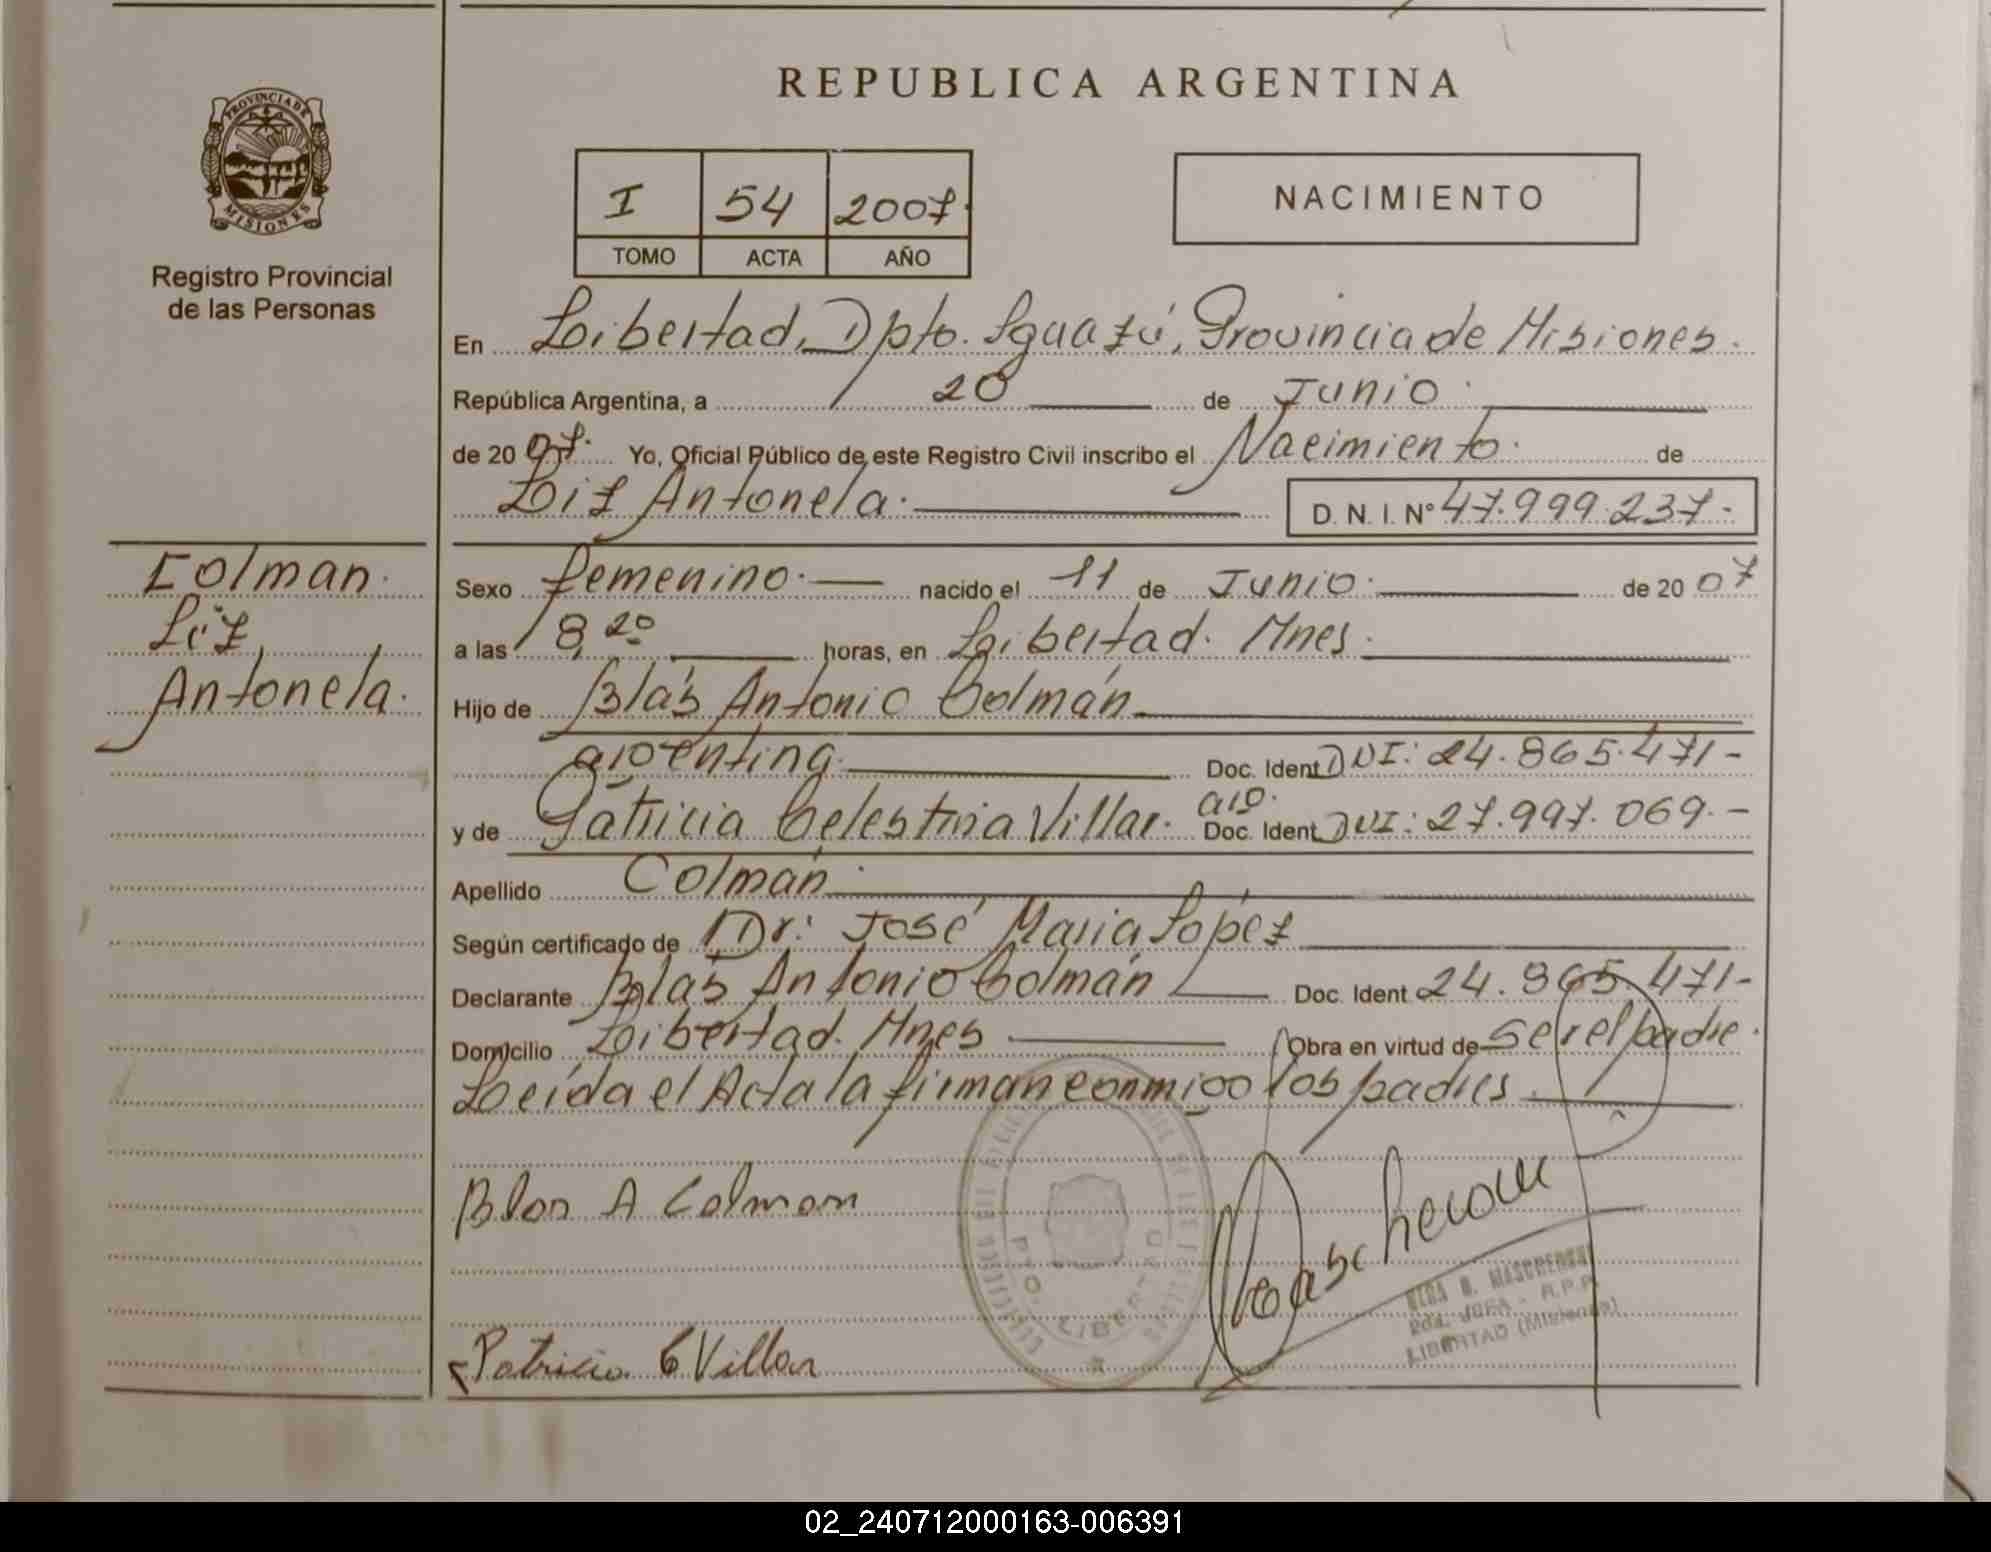 REPUBLICA ARGENTINA
PROVINCIA DE
MISIONES
Registro Provincial
de las Personas
I 54 2007.
TOMO ACTA AÑO
NACIMIENTO
En Libertad, Dpto. Iguazú, Provincia de Misiones.
República Argentina, a 20 de Junio.
de 2007. Yo, Oficial Público de este Registro Civil inscribo el Nacimiento. de
Liz Antonela. D. N. I. Nº 47.999.237.-
Colman.
Liz,
Antonela.
Sexo femenino. nacido el 11 de Junio. de 2007
a las 8,20 horas, en Libertad. Mnes.
Hijo de Blás Antonio Colmán
argentina. Doc. Ident DNI: 24.865.471-
y de Patricia Celestina Villar. arg. Doc. Ident DNI: 27.997.069.-
Apellido Colmán.
Según certificado de Dr: José María López
Declarante Blás Antonio Colmán Doc. Ident 24.865.471-
Domicilio Libertad. Mnes Obra en virtud de ser el padre.
Leída el Acta la firman conmigo los padres.
Blas A Colman
PTO. LIBERTAD
MASCHERONI
2da. JEFA - R.P.P.
LIBERTAD (Misiones)
Patricia C Villar
02_240712000163-006391